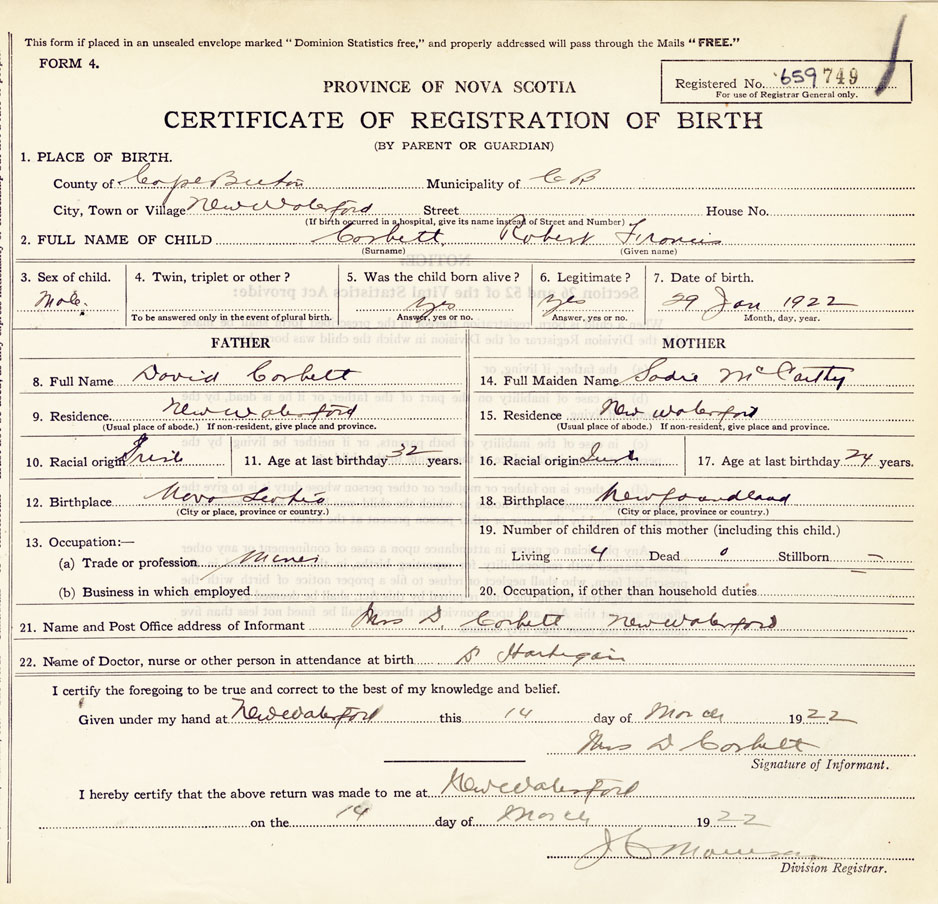 This form if placed in an unsealed envelope marked "Dominion Statistics free," and properly addressed will pass through the Mails "FREE."
FORM 4.
Registered No. 659749
For use of Registrar General only.
PROVINCE OF NOVA SCOTIA
CERTIFICATE OF REGISTRATION OF BIRTH
(BY PARENT OR GUARDIAN)
1. PLACE OF BIRTH.
County of Cape Breton Municipality of C B
City, Town or Village New Waterford Street House No.
(If birth occurred in a hospital, give its name instead of Street and Number)
2. FULL NAME OF CHILD Corbett Robert Francis
(Surname) (Given name)
3. Sex of child. 4. Twin, triplet or other? 5. Was the child born alive? 6. Legitimate? 7. Date of birth.
Male. yes yes 29 Jan 1922
To be answered only in the event of plural birth. Answer, yes or no. Answer, yes or no. Month, day, year.
FATHER MOTHER
8. Full Name David Corbett 14. Full Maiden Name Sadie McCarthy
9. Residence New Waterford 15. Residence New Waterford
(Usual place of abode.) If non-resident, give place and province. (Usual place of abode.) If non-resident, give place and province.
10. Racial origin Irish 11. Age at last birthday 32 years. 16. Racial origin Irish 17. Age at last birthday 24 years.
12. Birthplace Nova Scotia 18. Birthplace Newfoundland
(City or place, province or country.) (City or place, province or country.)
13. Occupation:— 19. Number of children of this mother (including this child.)
(a) Trade or profession Miner Living 4 Dead 0 Stillborn —
(b) Business in which employed 20. Occupation, if other than household duties
21. Name and Post Office address of Informant Mrs D. Corbett New Waterford
22. Name of Doctor, nurse or other person in attendance at birth Dr Hartigan
I certify the foregoing to be true and correct to the best of my knowledge and belief.
Given under my hand at New Waterford this 14 day of March 1922
Mrs D Corbett
Signature of Informant.
I hereby certify that the above return was made to me at New Waterford
on the 14 day of March 1922
Division Registrar.